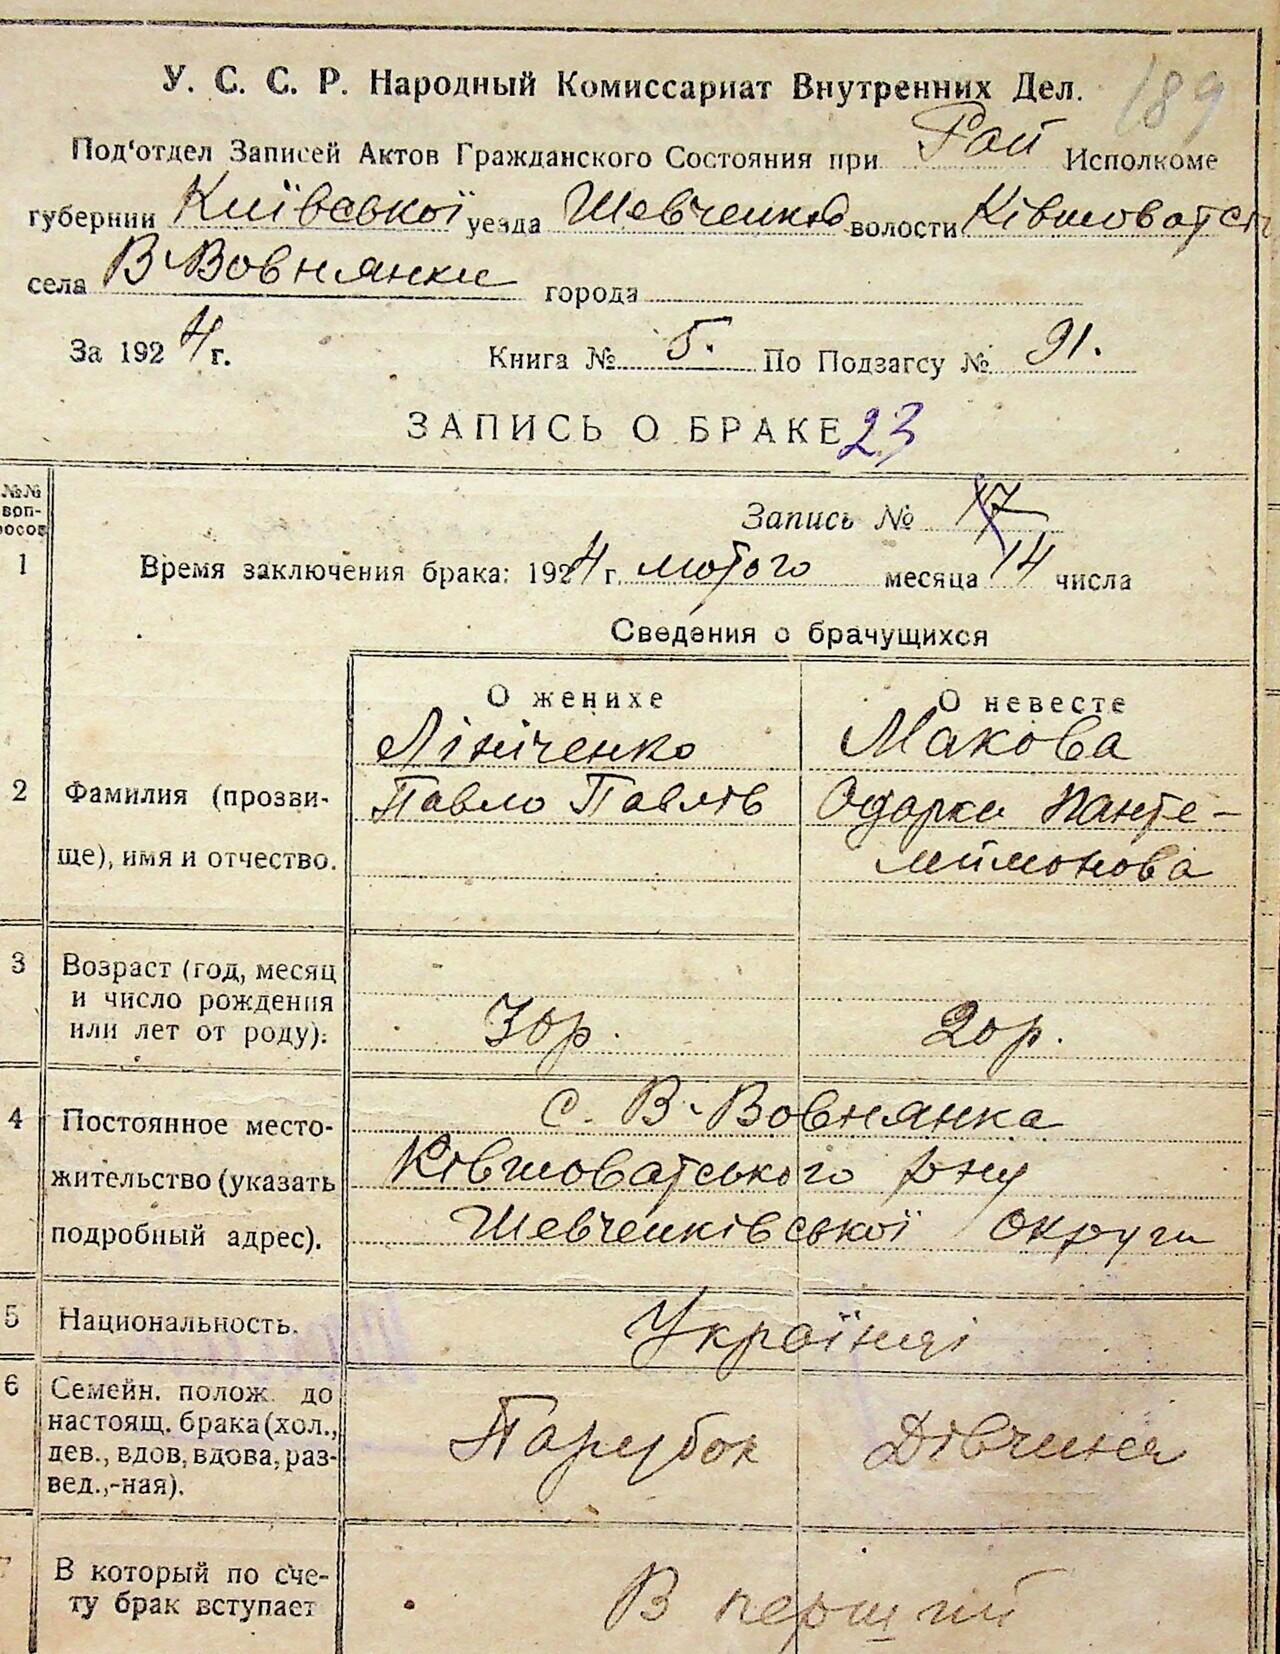 189
У. С. С. Р. Народный Комиссариат Внутренних Дел.
Под'отдел Записей Актов Гражданского Состояния при Рай Исполкоме
губернии Київської уезда Шевченків волости Ківшоватсь
села В-Вовнянки города
За 1924 г. Книга № 5. По Подзагсу № 91.
ЗАПИСЬ О БРАКЕ 23
№№ вопросов
Запись № 17
1 Время заключения брака: 1924 г. лютого месяца 14 числа
Сведения о брачущихся
О женихе О невесте
Лініченко Макова
2 Фамилия (прозви- Павло Павлів Одарки Панте-
ще), имя и отчество. лимонова
3 Возраст (год, месяц
и число рождения
или лет от роду): 30р. 20р.
4 Постоянное место- с. В-Вовнянка
жительство (указать Ківшоватського р-ну
подробный адрес). Шевченківської округи
5 Национальность. Українці
6 Семейн. полож. до
настоящ. брака (хол., Парубок Дівчина
дев., вдов, вдова, раз-
вед.,-ная).
7 В который по сче-
ту брак вступает В перший